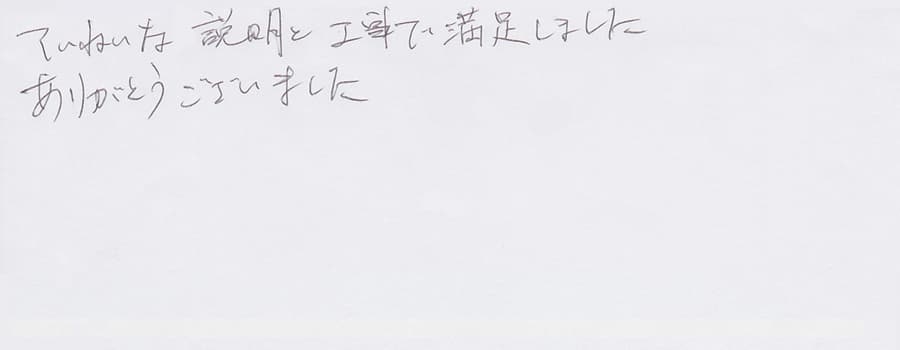 ていねいな説明と工事で満足しました
ありがとうございました